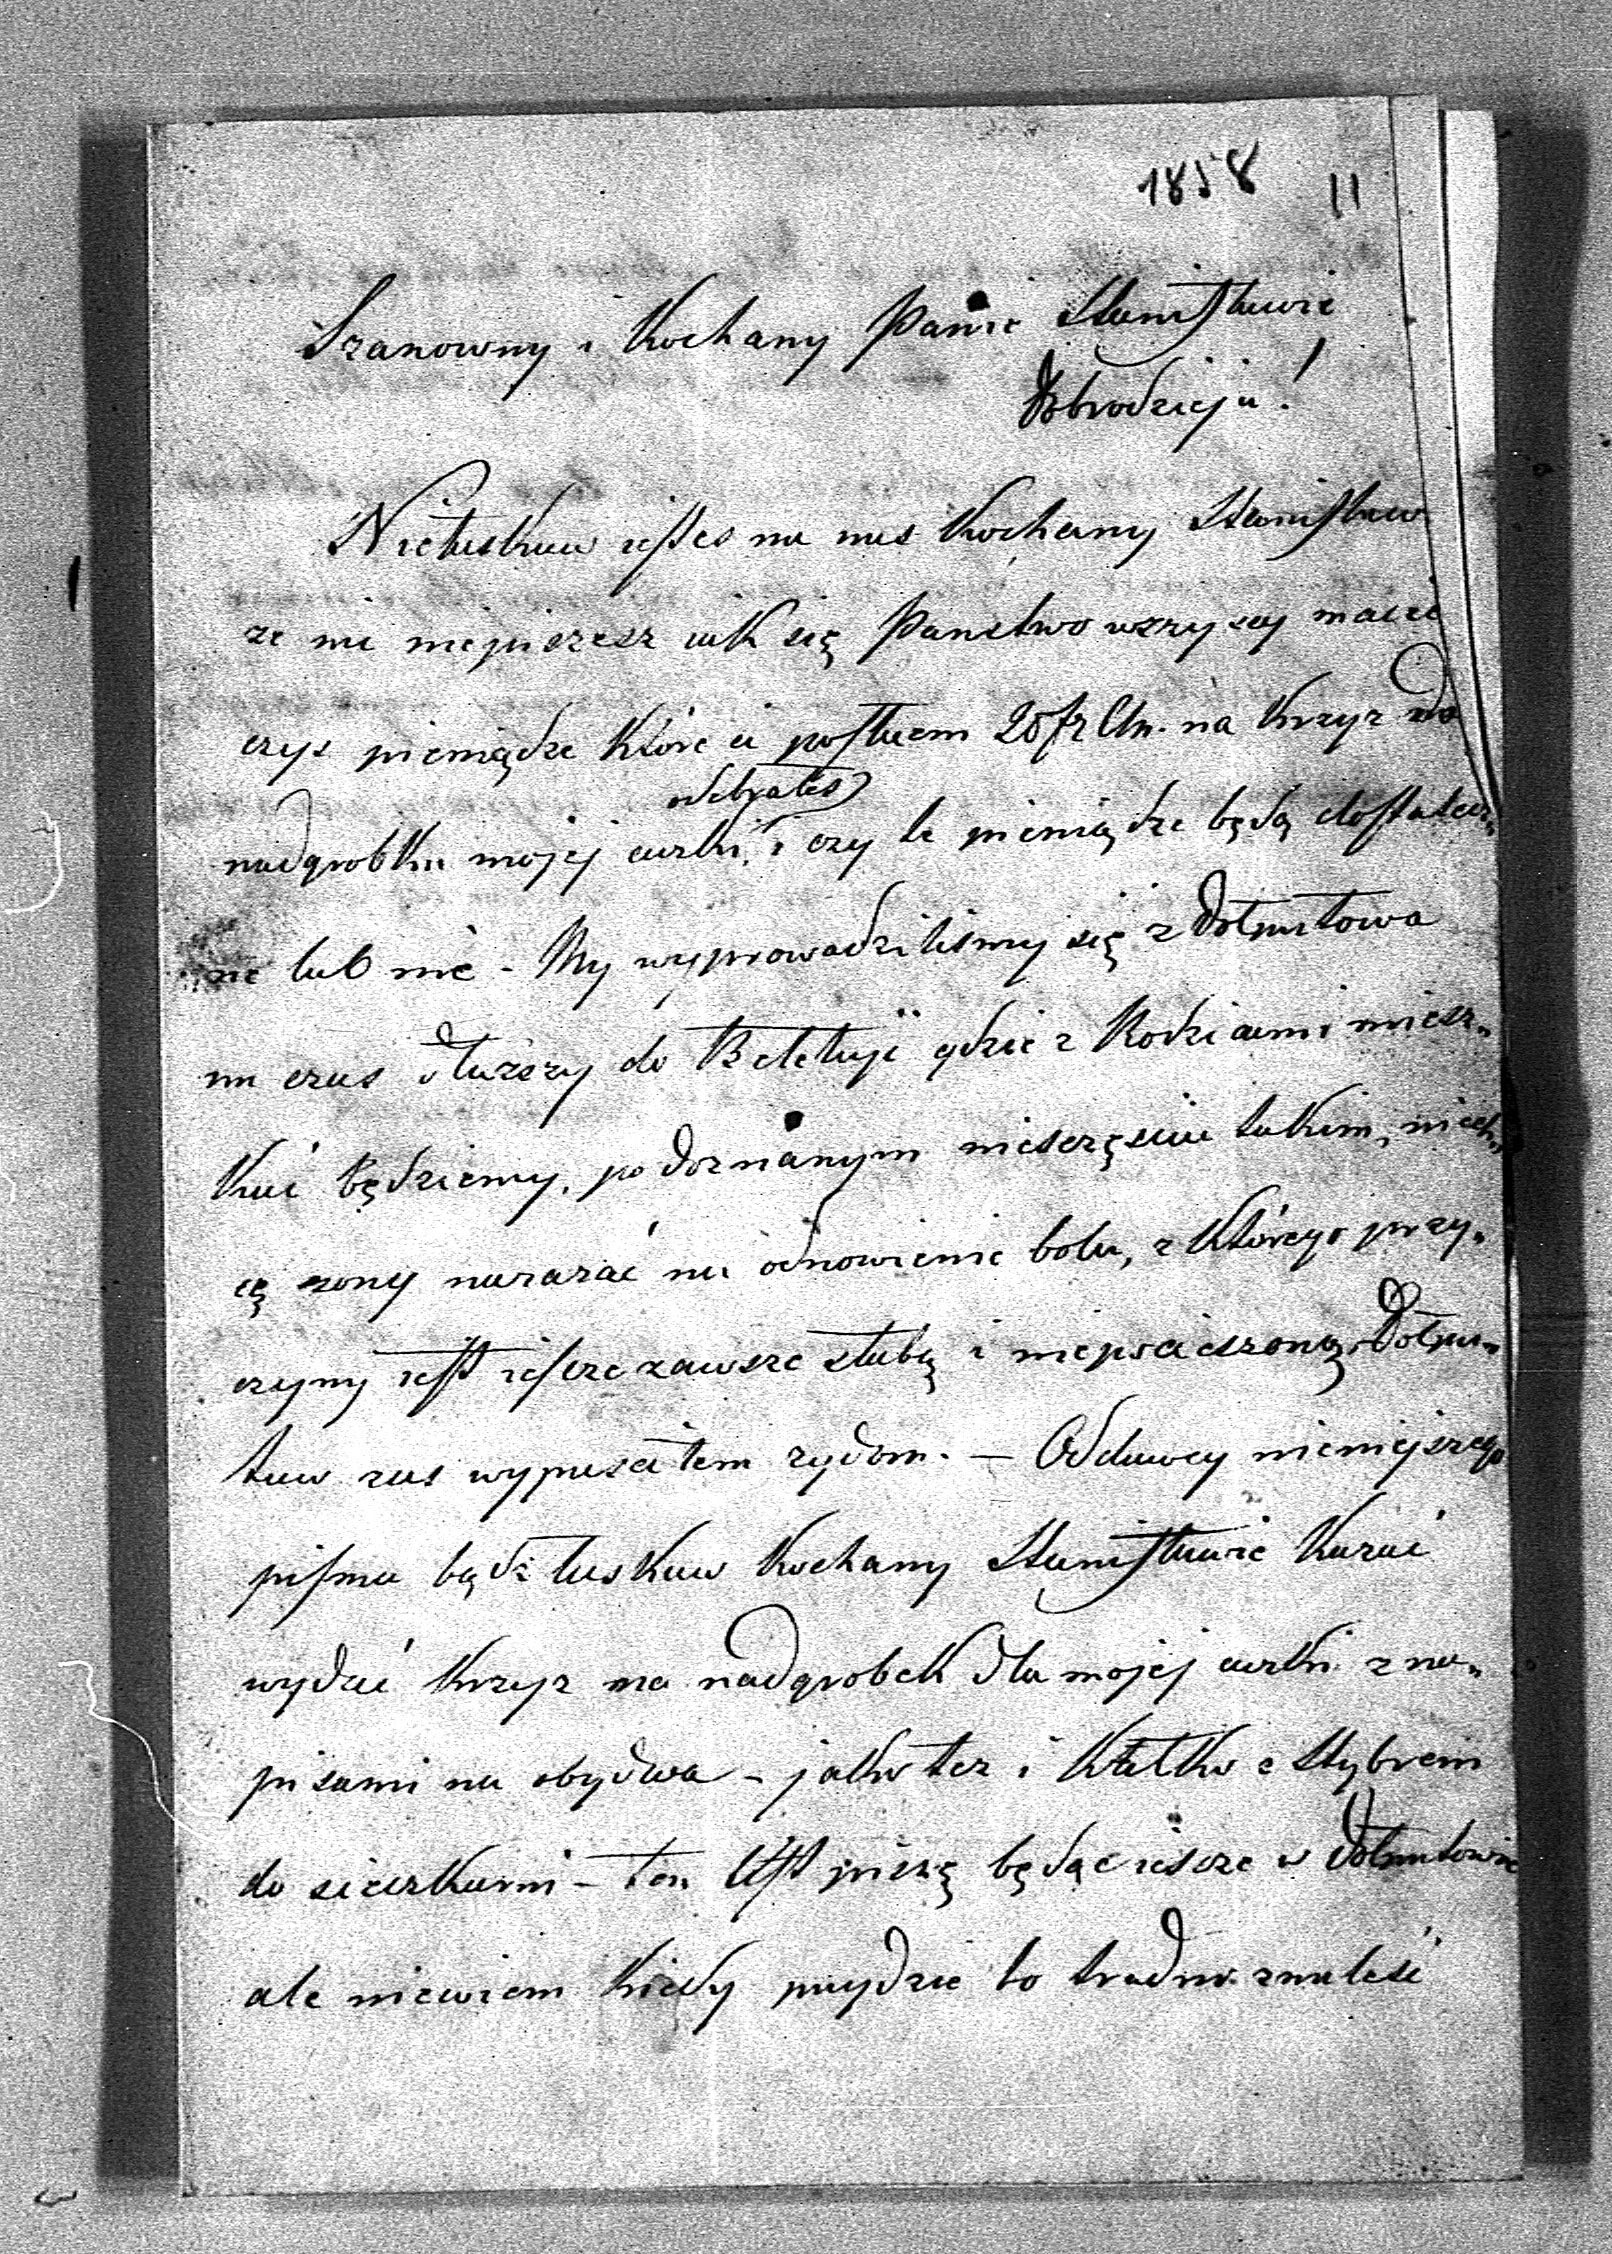 1858 11
Szanowny i Kochany Panie Stanisławie
Dobrodzieju!
Niełaskaw iesteś na nas Kochany Stanisław
ze mi niepiszesz iak się Państwo wszyscy macie
czyś pieniądze które ci posłałem 20 fr CM. na Krzyż do
odebrałeś
nadgrobku mojej curki, i czy te pieniądze będą dostatecz„
ne lub nie - My wyprowadziliśmy się z Dołpotowa
na czas dłuższy do Beletuji gdzie z Rodzicami miesz„
kać będziemy, po doznanym nieszczęściu takim, niech„
cę żony narażać na odnowienie bolu, z którego przy„
czyny iest iescze zawsze słabą i niepocieszoną, Dołpo„
tuw zas wypuściłem zydom. — Oddawcy nieniejszego
pisma bądź łaskaw Kochany Stanisławie Kazać
wydać Krzyż na nadgrobek dla mojej curki z na„
pisami na obydwa - jako tez i Kółko z Stybrem
do sieczkarni - ten list piszę będąc iescze w Dołpotowie
ale niewiem kiedy puydzie bo trudno znaleść